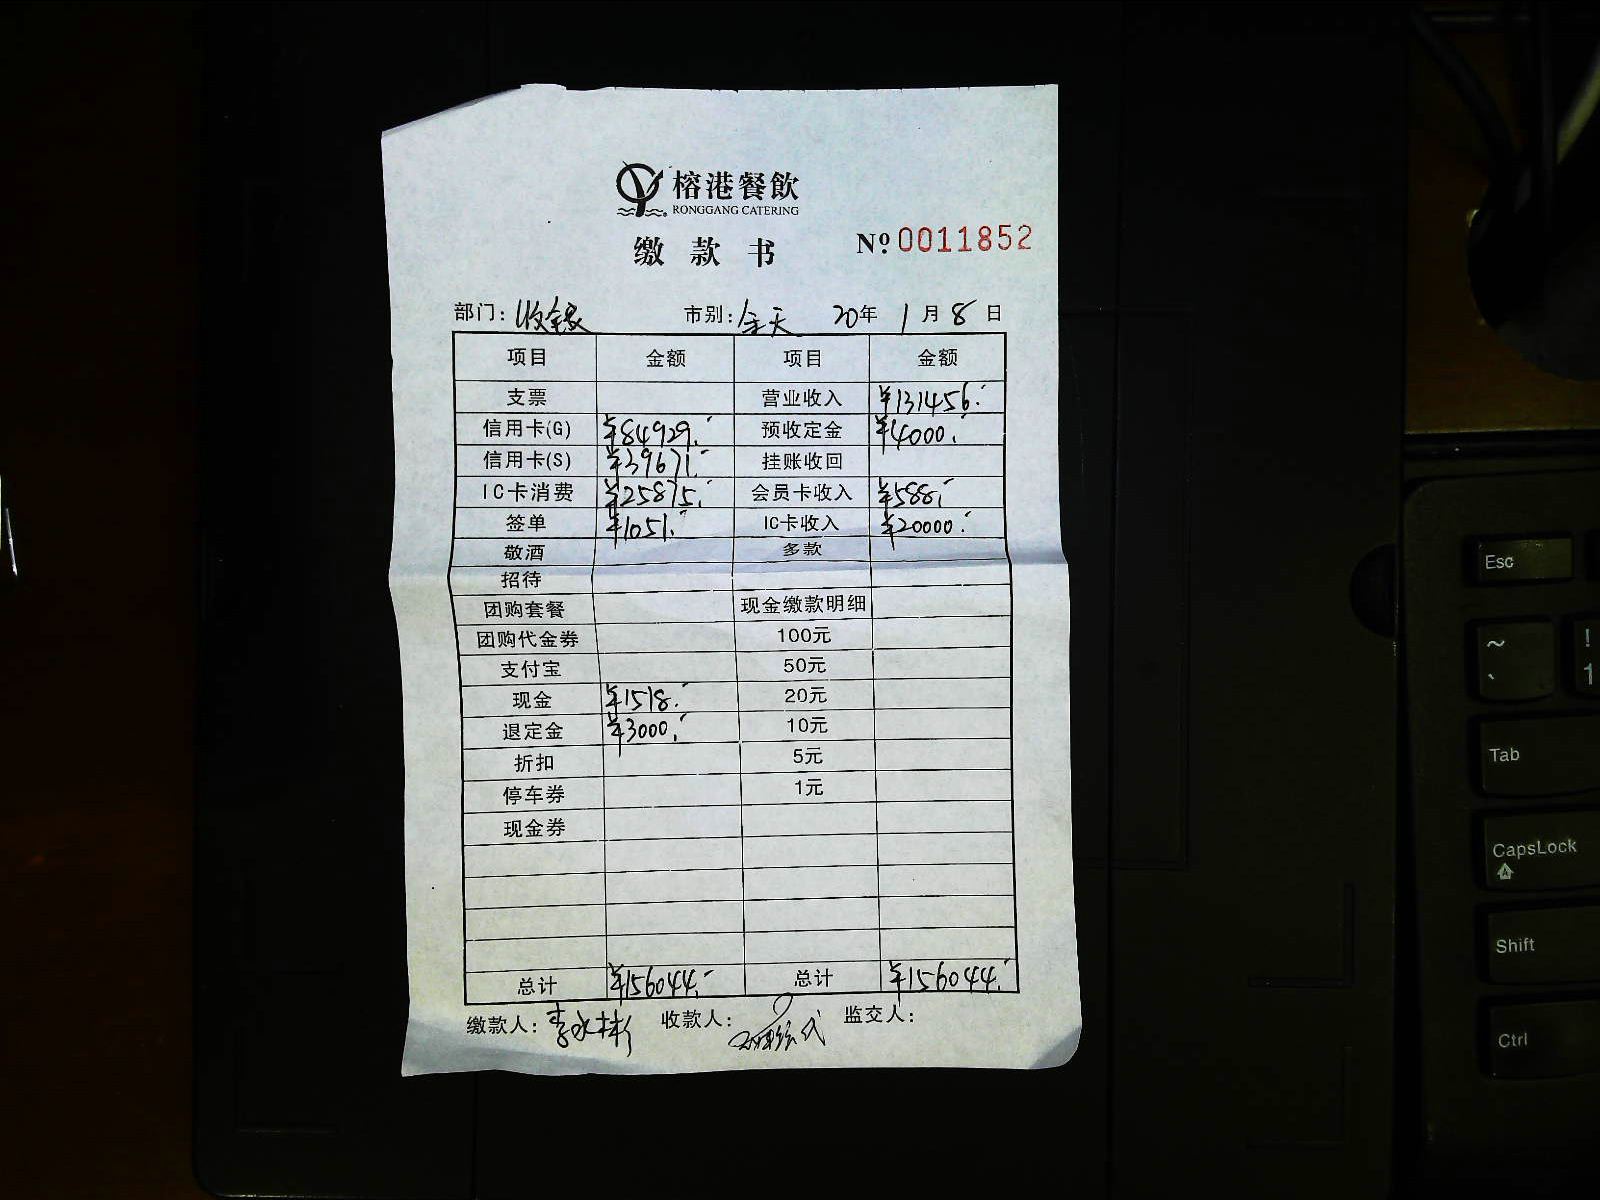 榕港餐飲
RONGGANG CATERING
缴款书 Nº 0011852
部门: 收银 市别: 全天 20年 1月 8日
项目 金额 项目 金额
支票 营业收入 ¥131456.-
信用卡(G) ¥84929.- 预收定金 ¥4000.-
信用卡(S) ¥39671.- 挂账收回
IC卡消费 ¥25875.- 会员卡收入 ¥588.-
签单 ¥1051.- IC卡收入 ¥20000.-
敬酒 多款
招待
团购套餐 现金缴款明细
团购代金券 100元
支付宝 50元
现金 ¥1518.- 20元
退定金 ¥3000.- 10元
折扣 5元
停车券 1元
现金券
总计 ¥156044.- 总计 ¥156044.-
缴款人: 李水彬 收款人: 代 监交人:
Esc
~ !
` 1
Tab
CapsLock
Shift
Ctrl